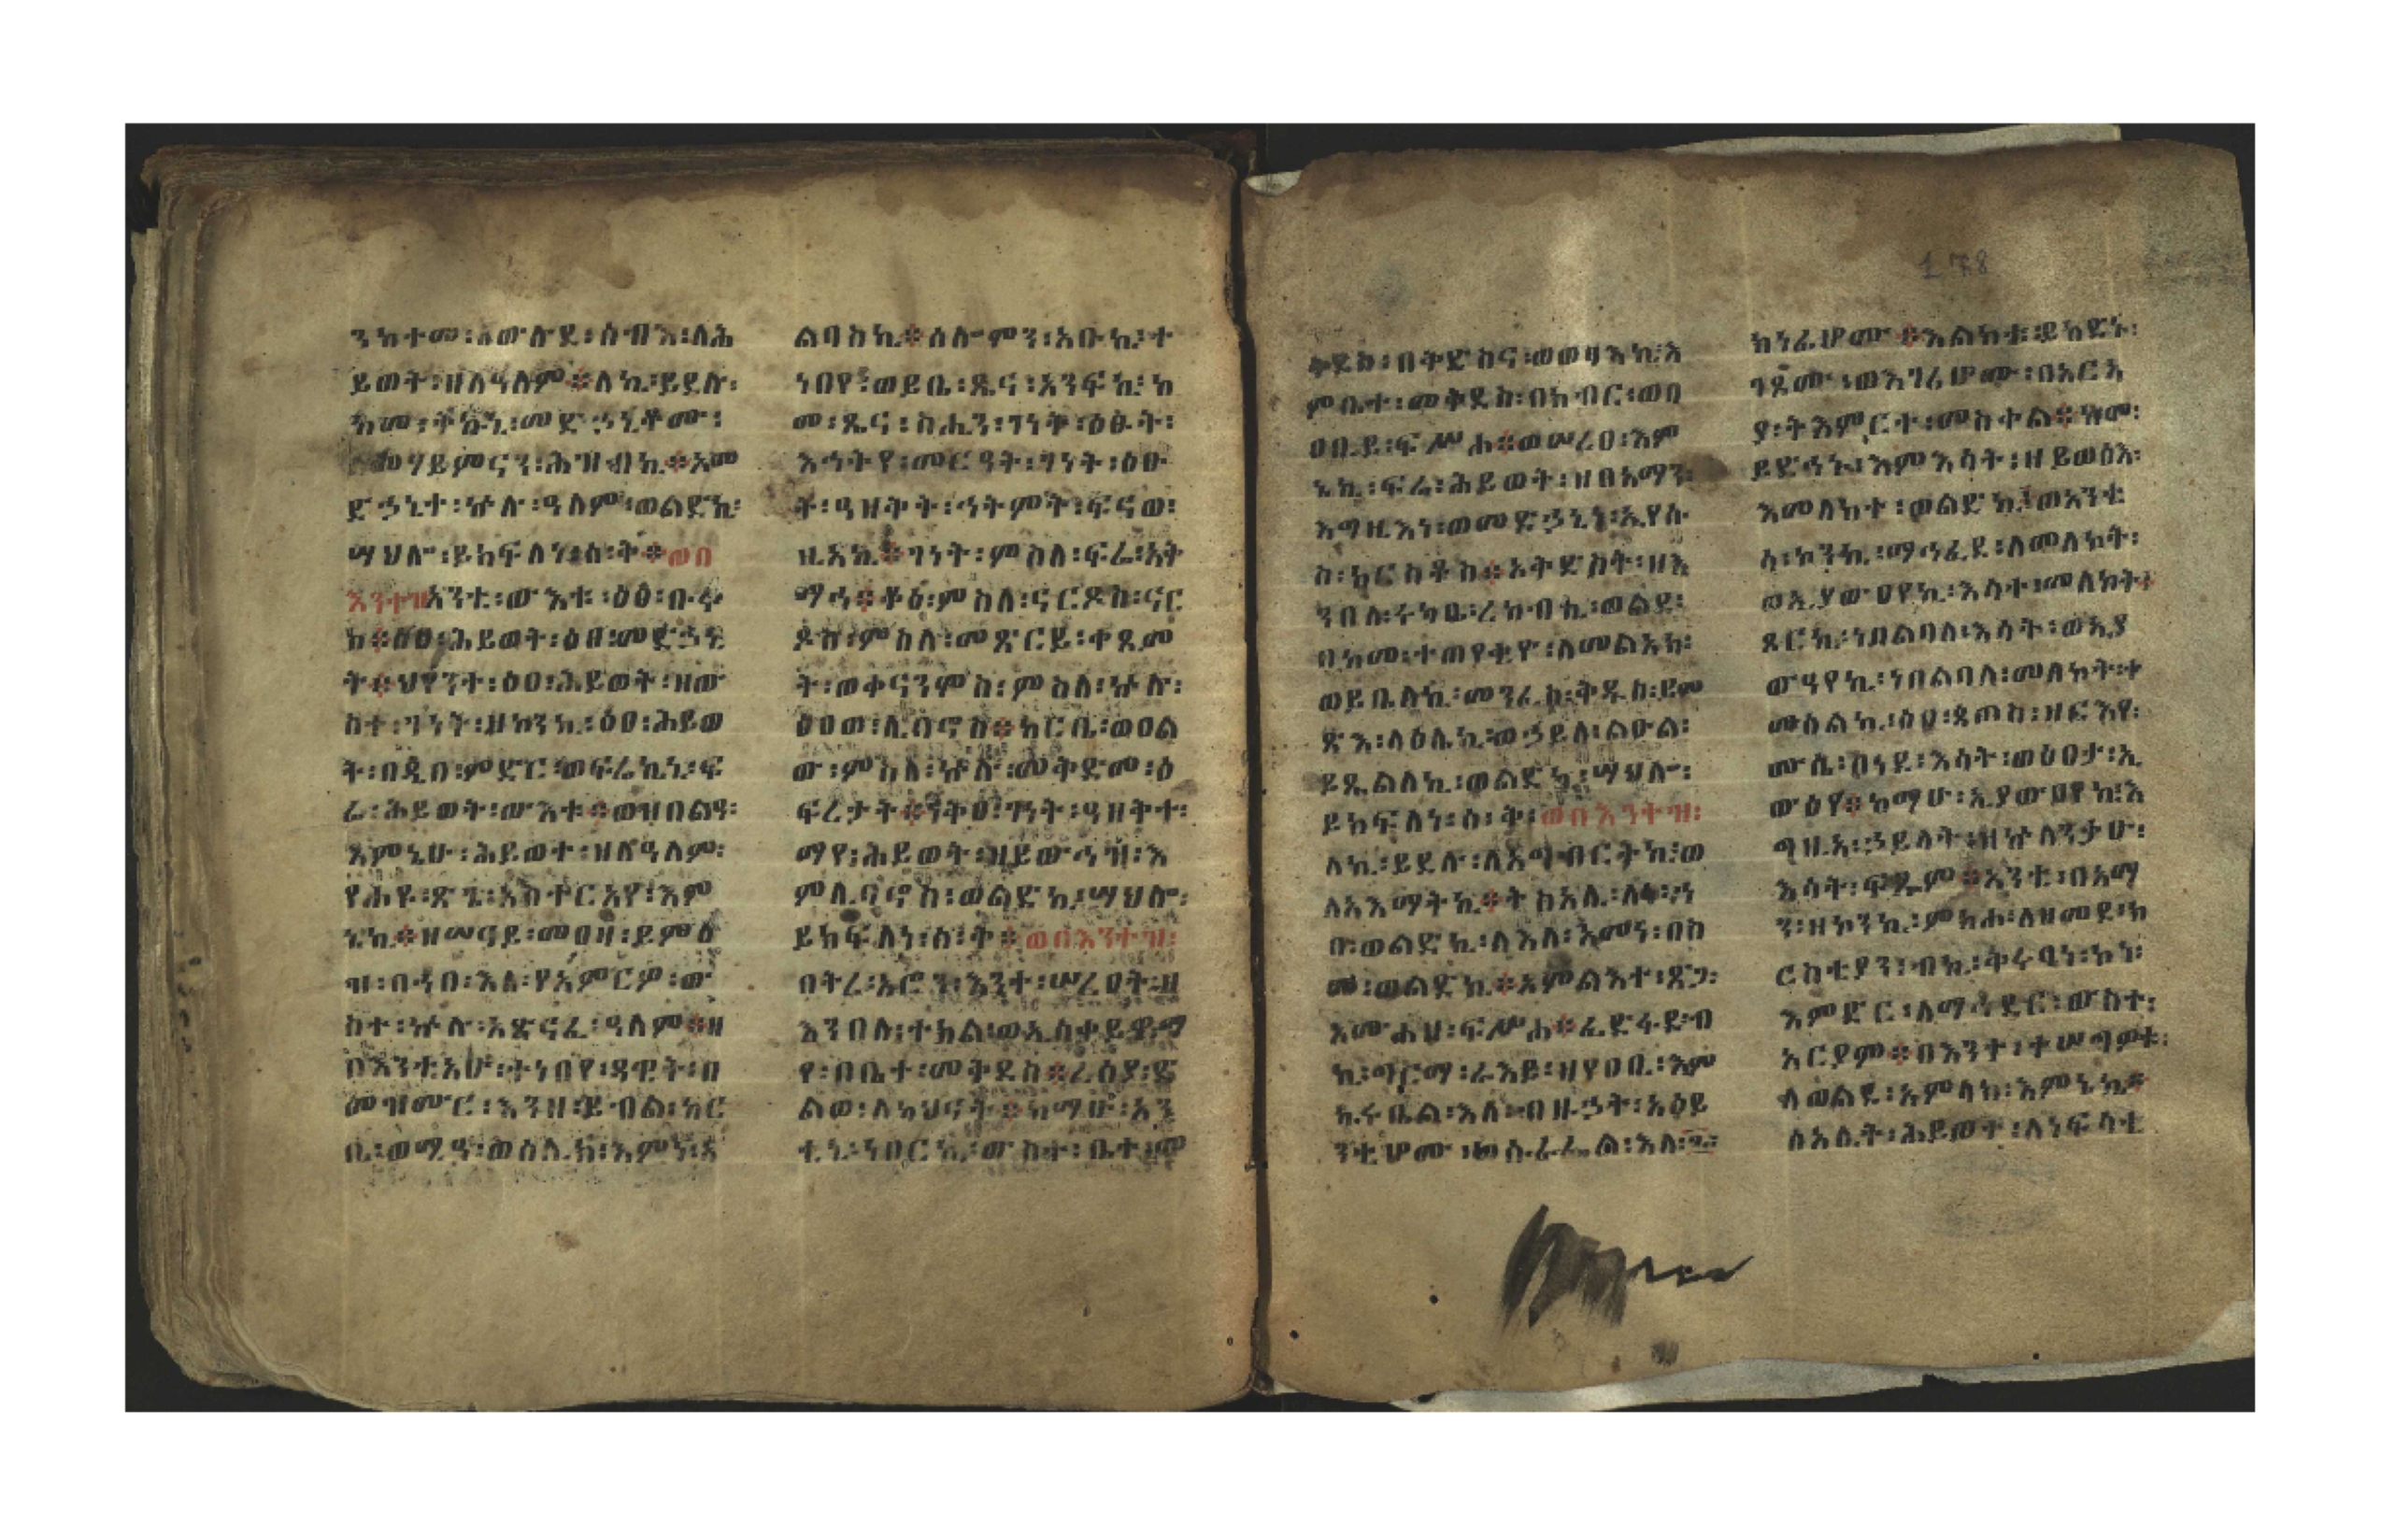 ንከተመ፡አውሉደ፡ሰብእ፡ለሕ
ይወት፡ዘለዓለም።ለኪ፡ይደሉ፡
መድኃኒቶሙ፡
ድኃኒተ፡ኵሉ፡ዓለም፡ወልድኪ፡
ሣህሎ፡ይክፍለነ፡ስ፡ት።ወበ
እንተዝአንቲ፡ውእቱ፡ዕፅ፡ቡሩ
ክ።ዕፀ፡ሕይወት፡ዕፀ፡መድኃኒ
ት።ህየንተ፡ዕፀ፡ሕይወት፡ዘው
ስተ፡ገነት፡ዘኮንኪ፡ዕፀ፡ሕይወ
ት፡በዲበ፡ምድር፡ወፍሬኪኒ፡ፍ
ሬ፡ሕይወት፡ውእቱ።ወዝበልዓ፡
እምኔሁ፡ሕይወተ፡ዘለዓለም፡
የሐዩ፡ጽጌ፡አስተርአየ፡እም
ኔኪ።ዘሠናይ፡መዐዛ፡ይምዕ
ዝ፡በኀበ፡እለ፡የአምርዎ፡ው
ስተ፡ኵሉ፡አጽናፈ፡ዓለም።ዘ
በእንቲአሁ፡ተነበየ፡ዳዊት፡በ
መዝሙር፡እንዘ፡ይብል፡ከር
ቤ፡ወሚዓ፡ወሰሊክ፡እምነ፡አ
ልባስኪ።ሰሎሞን፡አቡኪ፡ተ
ነበየ፡ወይቤ፡ጼና፡አንፍኪ፡ከ
መ፡ጼና፡ስሒን፡ገነት፡ዕፁት፡
እኅትየ፡መርዓት፡ገነት፡ዕፁ
ት፡ዓዘቅት፡ኅትምት፡ፍናወ፡
ዚአኪ።ገነት፡ምስለ፡ፍሬ፡አት
ማኅ።ቆዕ፡ምስለ፡ናርዶስ፡ናር
ዶስ፡ምስለ፡መጽርይ፡ቀጺመ
ት፡ወቀናንሞስ፡ምስለ፡ኵሉ፡
ዕፀወ፡ሊባኖስ።ከርቤ፡ወዐል
ው፡ምስለ፡ኵሉ፡መቅድመ፡ዕ
ፍረታት።ነቅዐ፡ገነት፡ዓዘቅተ፡
ማየ፡ሕይወት፡ዘይውኅዝ፡እ
ምሊባኖስ፡ወልድኪ፡ሣህሎ፡
ይክፍለነ፡ስ፡ት።ወበእንተዝ፡
በትረ፡አሮን፡እንተ፡ሠረፀት፡ዘ
እንበለ፡ተክል፡ወኢሰቀይዋ፡ማ
የ፡በቤተ፡መቅደስ።ረሰያ፡ድ
ልወ፡ለክህናት።ከማሁ፡አን
ቲኒ፡ነበርኪ፡ውስተ፡ቤተ፡መ
ቅደስ፡በቅድስና፡ወወፃእኪ፡እ
ምቤተ፡መቅደስ፡በክብር፡ወበ
ዐቢይ፡ፍሥሐ።ወሠረፀ፡እም
ኔኪ፡ፍሬ፡ሕይወት፡ዘበአማን፡
እግዚእነ፡ወመድኃኒነ፡ኢየሱ
ስ፡ክርስቶስ።ኦቅድስት፡ዘእ
ንበለ፡ሩካቤ፡ረከብኪ፡ወልደ፡
በከመ፡ተጠየቂዮ፡ለመልአክ፡
ወይቤለኪ፡መንፈስ፡ቅዱስ፡ይመ
ጽእ፡ላዕሌኪ፡ወኃይለ፡ልዑል፡
ይጼልለኪ፡ወልድኪ፡ሣህሎ፡
ይክፍለነ፡ስ፡ት፡ወበእንተዝ፡
ለኪ፡ይደሉ፡ለአግብርትኪ፡ወ
ለአእማትኪ።ትስአሊ፡
ቡ፡ወልድኪ፡ለእለ፡እመነ፡በስ
መ፡ወልድኪ።አምልእተ፡ጸጋ፡
እሙሐዘ፡ፍሥሐ።ፈድፋደ፡ብ
ኪ፡ግርማ፡ራእይ፡ዘየዐቢ፡እም
ኪሩቤል፡እለ፡ብዙኃት፡አዕይ
ንቲሆሙ፡ወሱራፌል፡እለ፡፮፡
ክነፊሆሙ።እልክቱ፡ይከድኑ፡
ገጾሙ፡ወእገሪሆሙ፡በአርአ
ያ፡ትእምርተ፡መስቀል።ከመ፡
ይድኀኑ፡እምእሳት፡ዘይወፅእ፡
እመለኮተ፡ወልድኪ፤ወአንቲ
ሰ፡ኮንኪ፡ማኅፈደ፡ለመለኮት፡
ወኢያውዐየኪ፡እሳተ፡መለኮት፡
ጾርኪ፡ነበልባለ፡እሳት፡ወኢያ
ውዓየኪ፡ነበልባለ፡መለኮት፡ተ
መሰልኪ፡ዕፀ፡ጳጦስ፡ዘርእየ፡
ሙሴ፡በነደ፡እሳት፡ወዕፀታ፡ኢ
ውዕየ።ከማሁ፡ኢያውዐየኪ፡እ
ግዚአ፡ኃይላት፡ዘኵለንታሁ፡
እሳት፡ፍጹም።አንቲ፡በአማ
ን፡ዘኮንኪ፡ምክሐ፡ለዘመደ፡ክ
ርስቲያን፡ብኪ፡ቅሩባነ፡ኮነ፡
እምድር፡ለማኅደር፡ውስተ፡
አርያም።በእንተ፡ተሠግዎቱ፡
ለወልደ፡አምላክ፡እምኔኪ።
ሰአሊት፡ሕይወተ፡ለነፍሳቲ